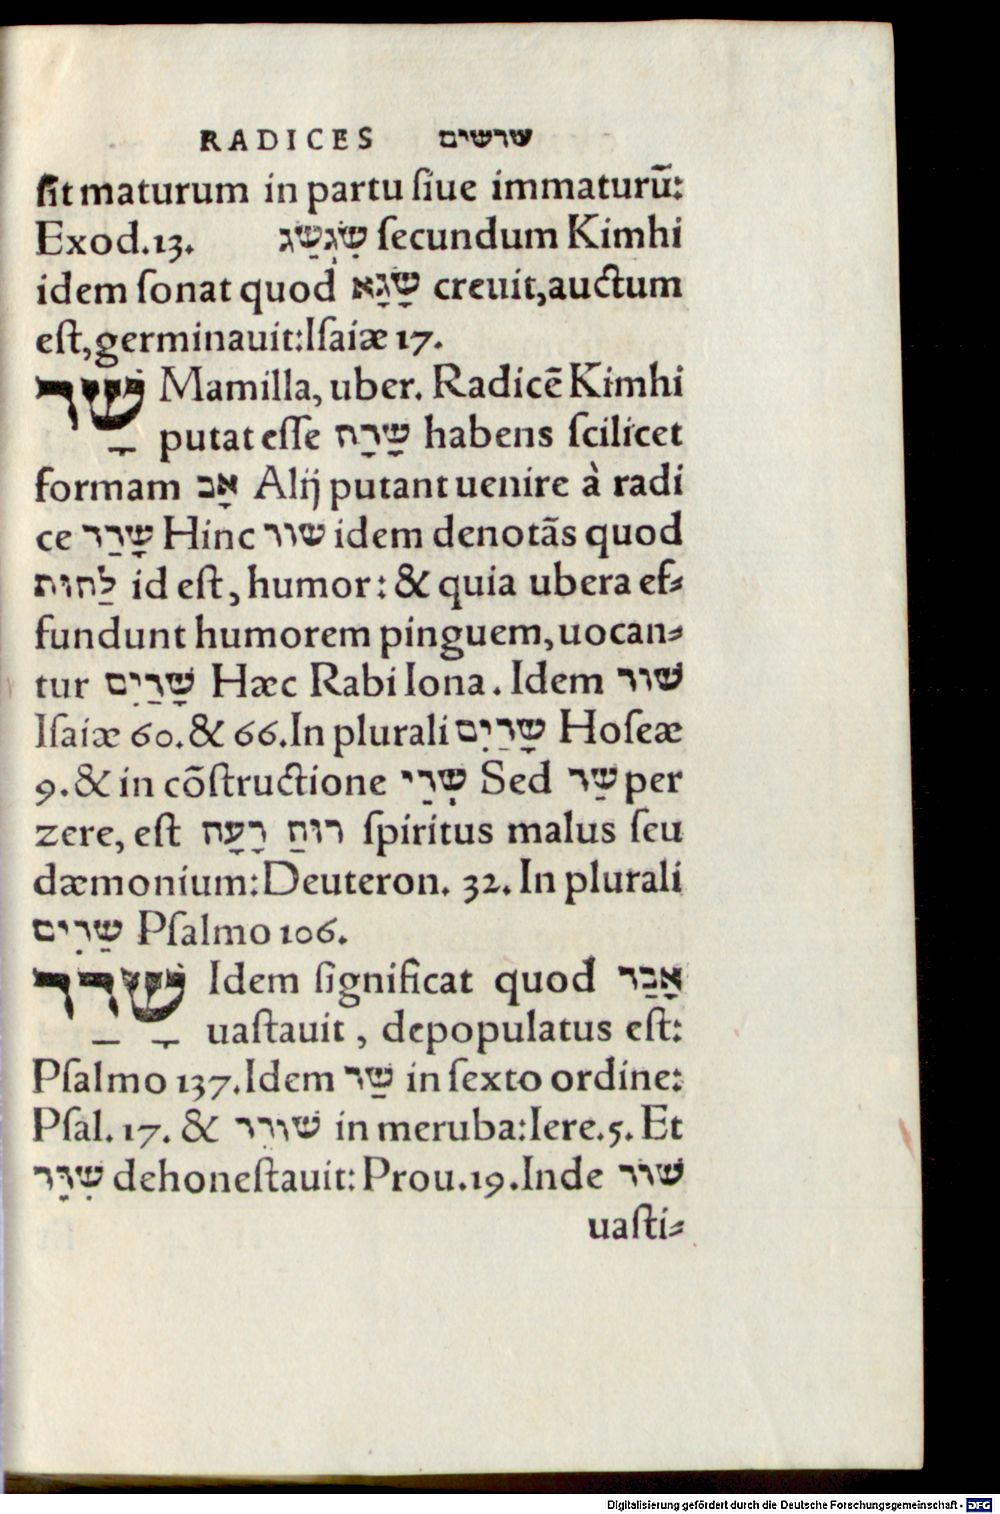 RADICES שרשים
sit maturum in partu siue immaturū:
Exod.13. שִׂגְשֵׂג secundum Kimhi
idem sonat quod שָׂגָא creuit,auctum
est,germinauit:Isaiæ 17.
שָׁד Mamilla, uber. Radicē Kimhi
putat esse שָׁדָה habens scilicet
formam אָב Alij putant uenire à radi
ce שָׁדַד Hinc שוד idem denotās quod
לַחוּת id est, humor: & quia ubera ef⸗
fundunt humorem pinguem,uocan⸗
tur שָׁדַיִם Hæc Rabi Iona. Idem שׁוֹד
Isaiæ 60.& 66.In plurali שָׁדַיִם Hoseæ
9.& in cōstructione שְׁדֵי Sed שֵׁד per
zere, est רוּחַ רָעָה spiritus malus seu
dæmonium:Deuteron. 32. In plurali
שֵׁדִים Psalmo 106.
שָׁדַד Idem significat quod אָבַד
uastauit, depopulatus est:
Psalmo 137.Idem שַׁד in sexto ordine:
Psal. 17. & שׁוֹדֵד in meruba:Iere.5. Et
שִׁדֵּד dehonestauit: Prou.19.Inde שׁוֹד
uasti⸗
Digitalisierung gefördert durch die Deutsche Forschungsgemeinschaft - DFG